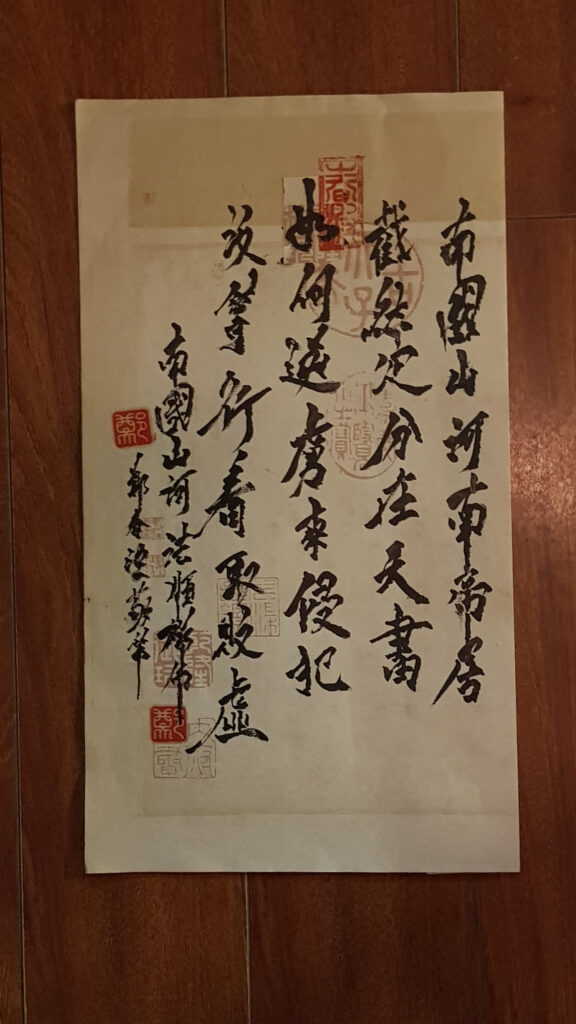 南國山河南帝居
截然定分在天書
如何逆虜來侵犯
汝等行看取敗虛
南國山河法順禪師
鄭
鄭